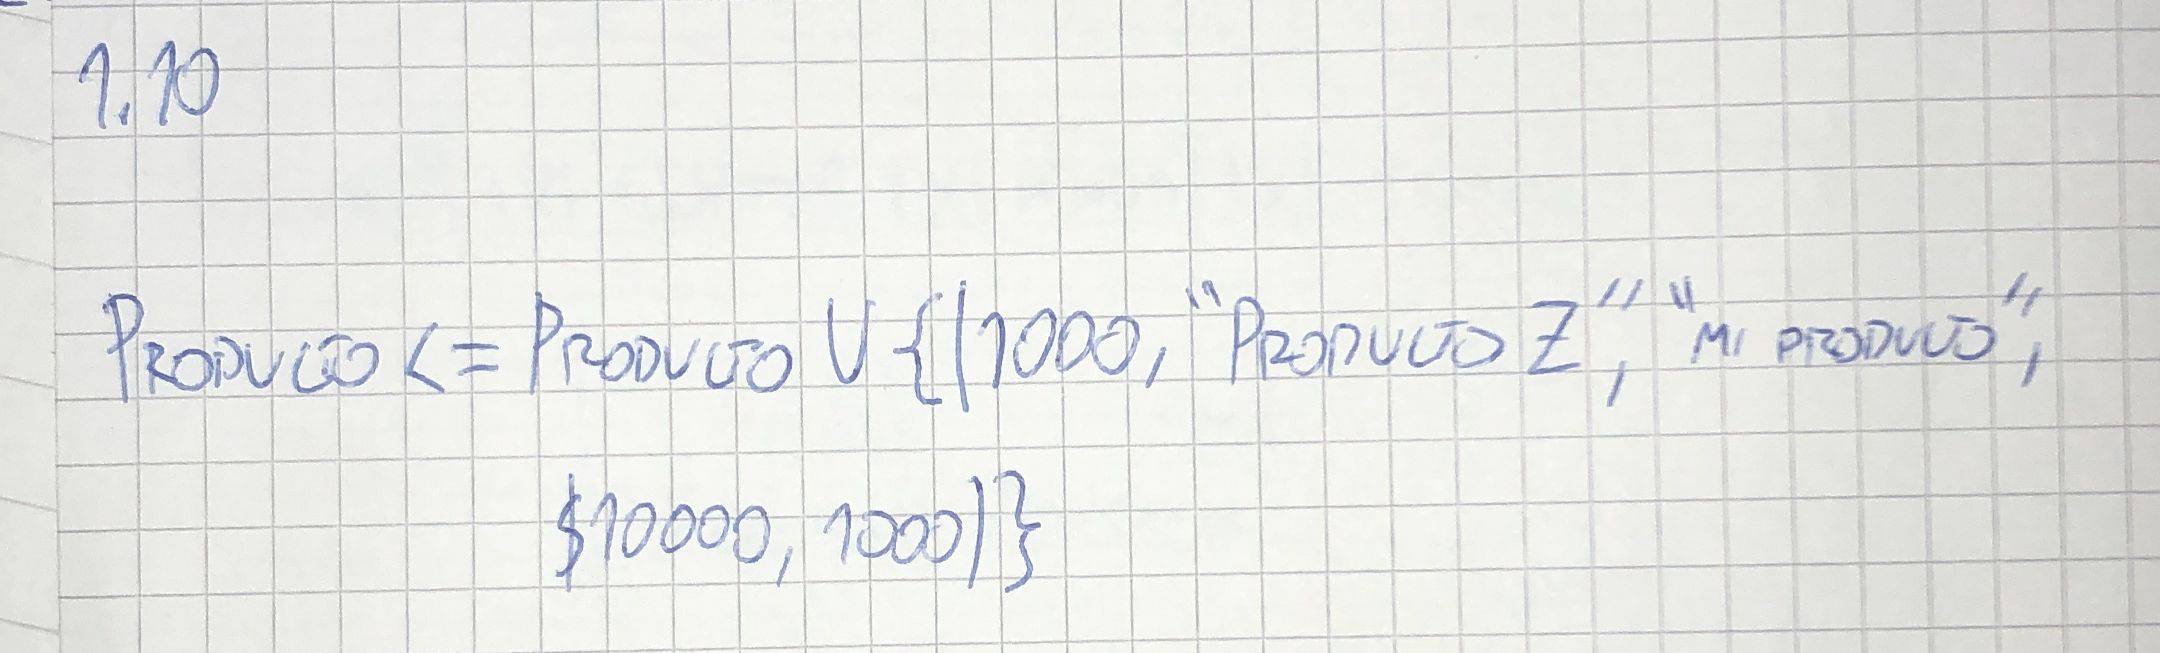 1.10
PRODUCTO <= PRODUCTO U {(1000, "PRODUCTO Z", "MI PRODUCTO",
$10000, 1000)}